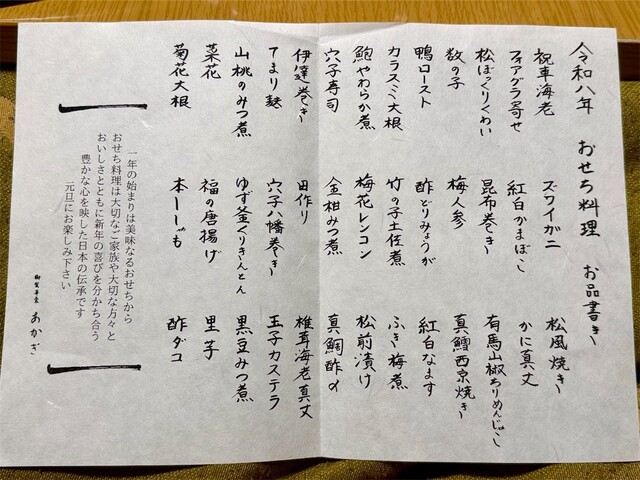 令和八年 おせち料理 お品書き
祝車海老 ズワイガニ 松風焼き
フォアグラ寄せ 紅白かまぼこ かに真丈
松ぼっくりくわい 昆布巻き 有馬山椒ちりめんじゃこ
数の子 梅人参 真鱈西京焼き
鴨ロースト 酢どりみょうが 紅白なます
カラスミ大根 竹の子土佐煮 ふき梅煮
鮑やわらか煮 梅花レンコン 松前漬け
穴子寿司 金柑みつ煮 真鯛酢〆
伊達巻き 田作り 椎茸海老真丈
てまり麩 穴子八幡巻き 玉子カステラ
山桃のみつ煮 ゆず釜くりきんとん 黒豆みつ煮
菜花 福の唐揚げ 里芋
菊花大根 本ししゃも 酢ダコ
一年の始まりは美味なるおせちから
おせち料理は大切なご家族や大切な方々と
おいしさとともに新年の喜びを分かち合う
豊かな心を映した日本の伝承です
元旦にお楽しみ下さい
あかぎ